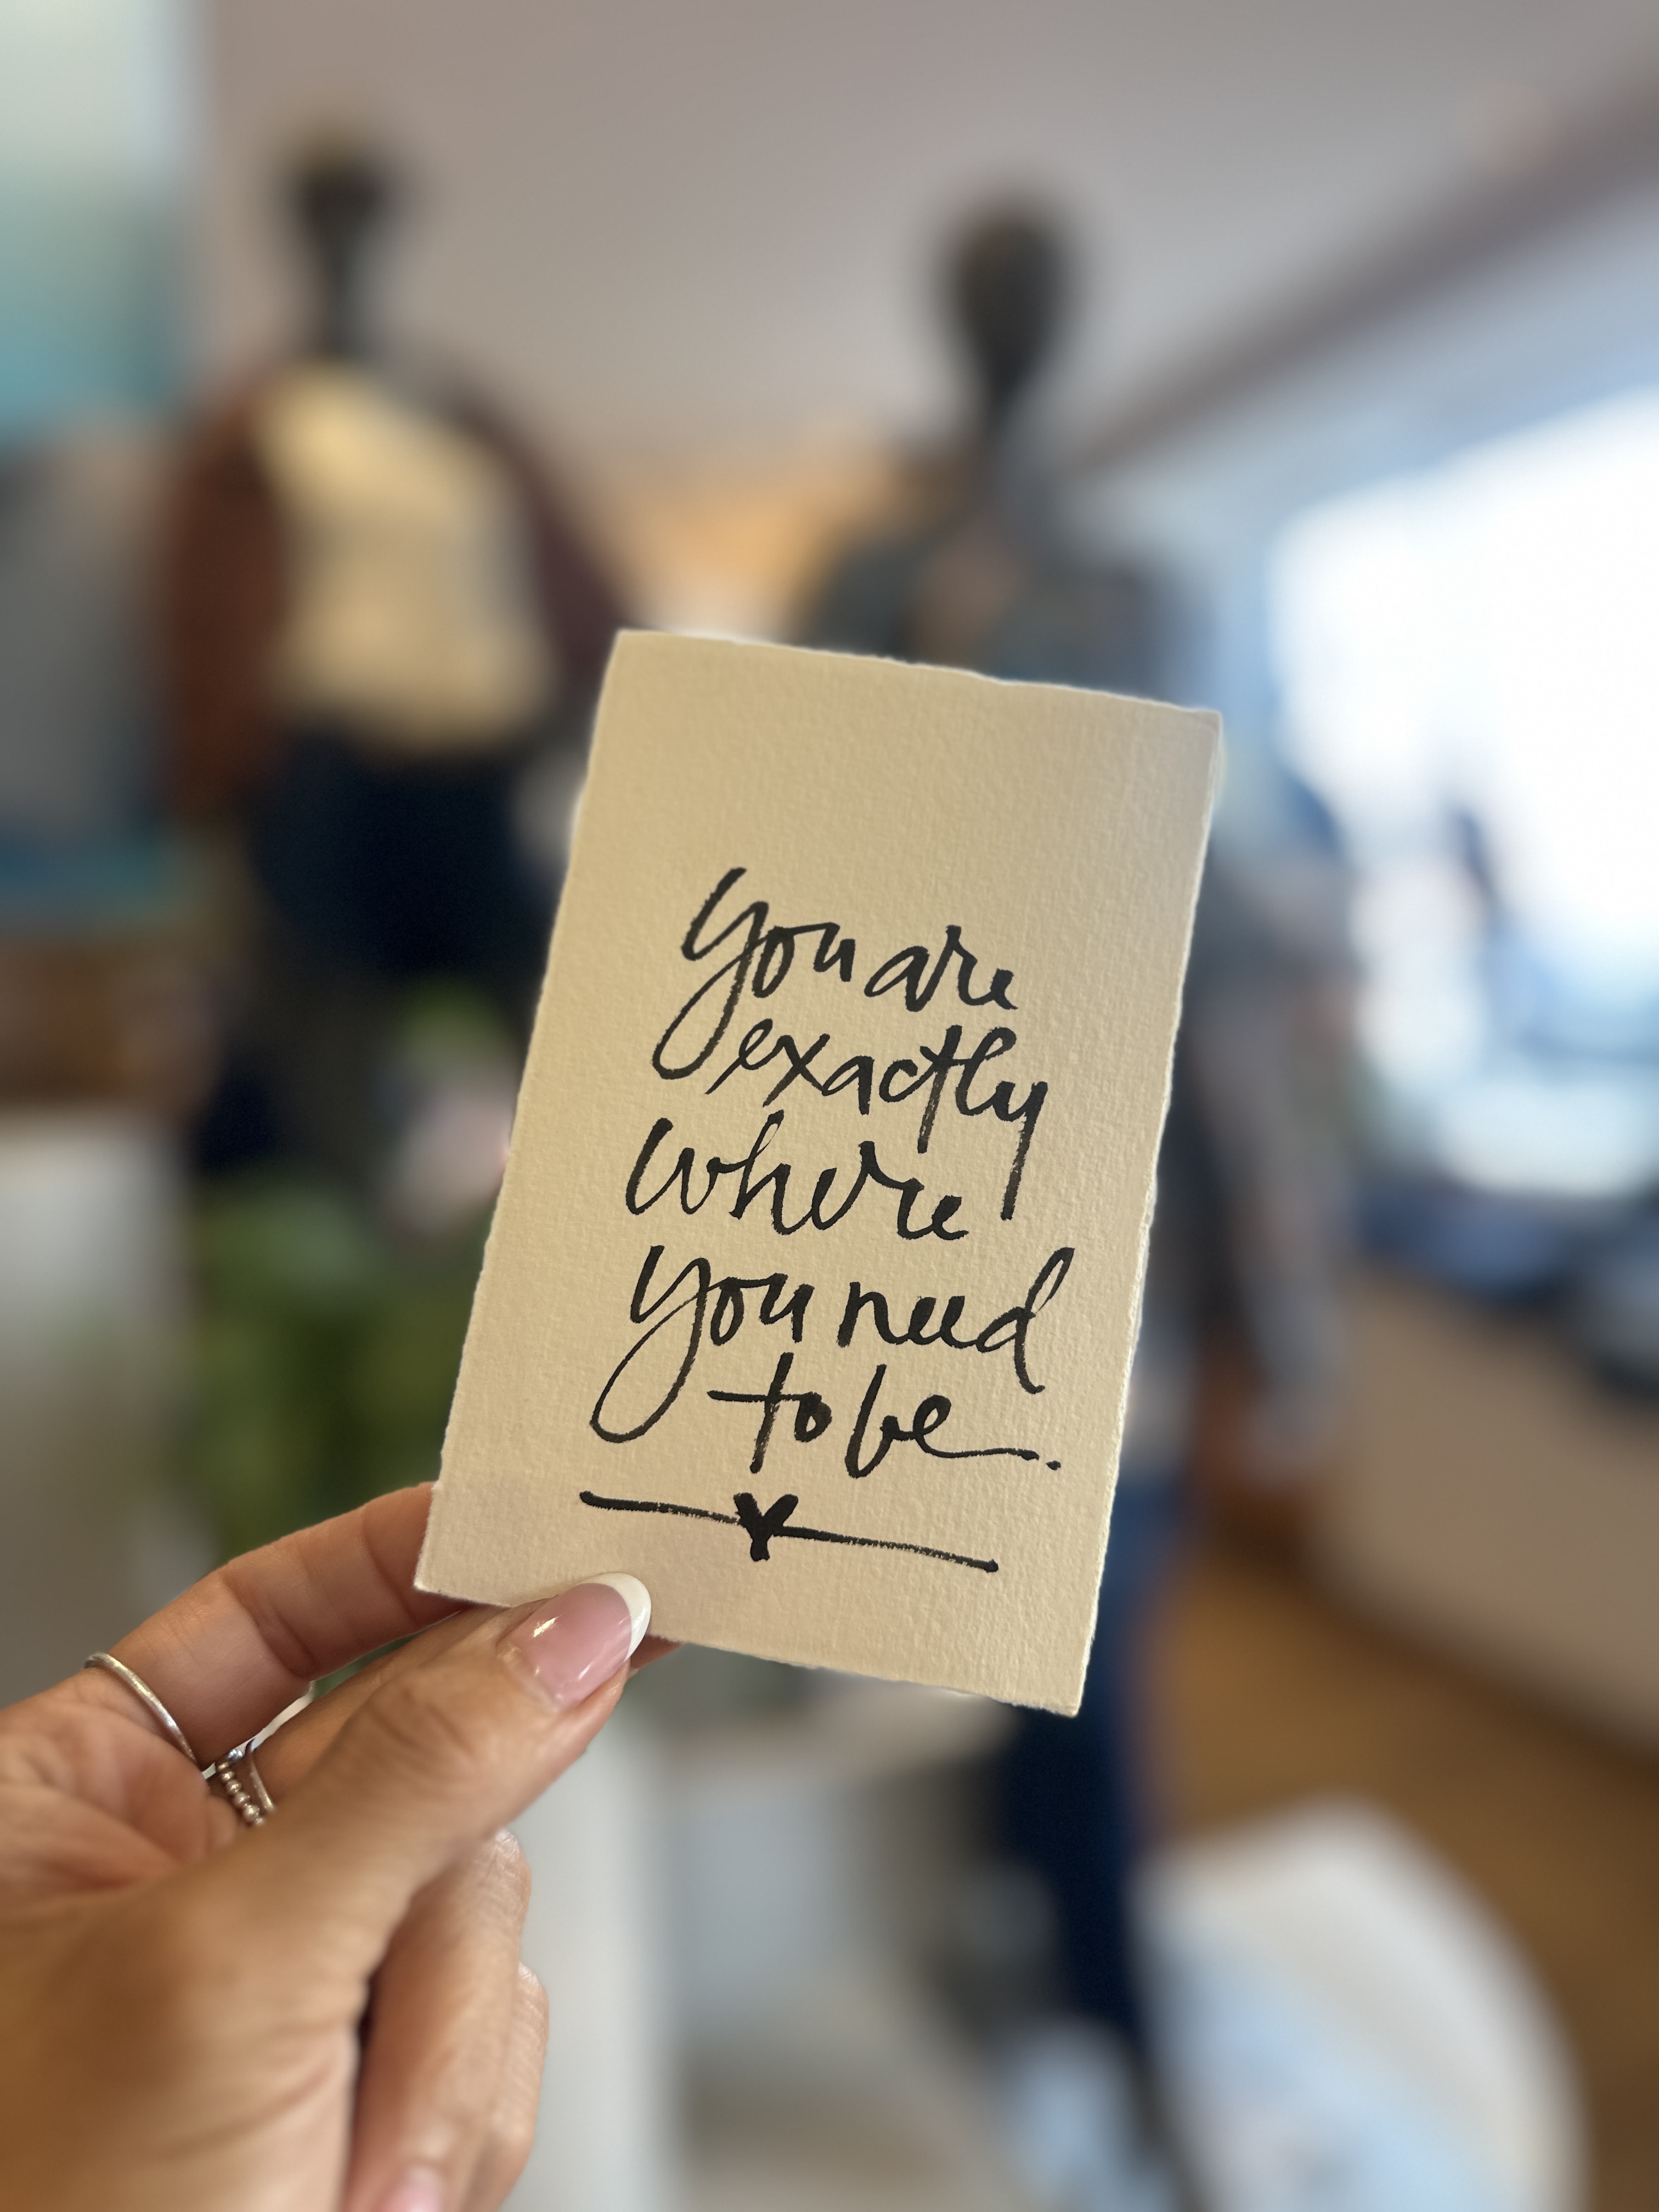 you are
exactly
where
you need
to be.